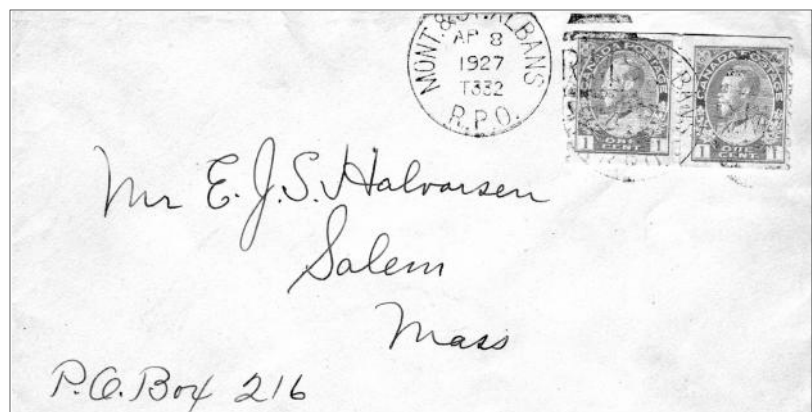 MONT. & ST. ALBANS
AP 8
1927
T332
R.P.O.
CANADA POSTAGE
1 ONE CENT 1
CANADA POSTAGE
1 ONE CENT 1
Mr E. J. S. Halvarsen
Salem
Mass
P.O. Box 216